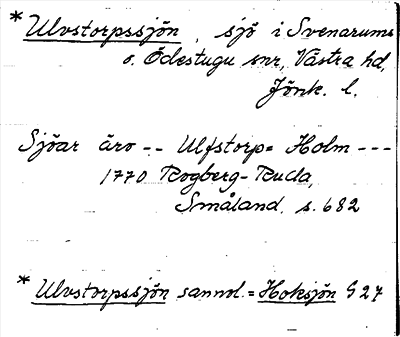 *Ulvstorpssjön, sjö i Svenarums
o. Ödestugu snr, Västra hd,
Jönk. l.
Sjöar äro -- Ulfstorp= Holm ---
1770 Rogberg-Ruda,
Småland, s. 682
*Ulvstorpssjön sannol.=Hoksjön G 27